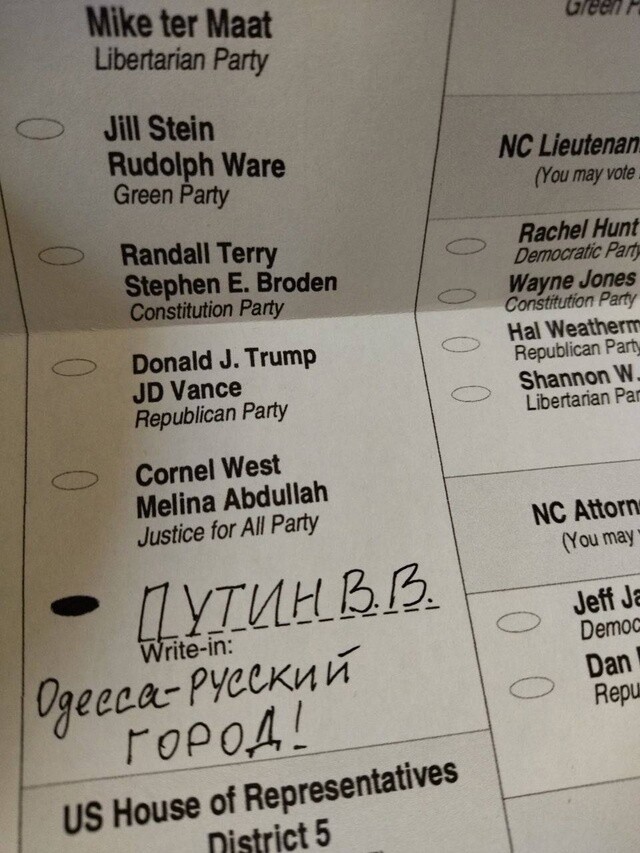 Mike ter Maat
Libertarian Party
Jill Stein
Rudolph Ware
Green Party
Randall Terry
Stephen E. Broden
Constitution Party
Donald J. Trump
JD Vance
Republican Party
Cornel West
Melina Abdullah
Justice for All Party
ПУТИН В.В.
Write-in:
Одесса-РУССКИЙ
ГОРОД!
US House of Representatives
District 5
Green
NC Lieutenan
(You may vote
Rachel Hunt
Democratic Party
Wayne Jones
Constitution Party
Hal Weatherm
Republican Party
Shannon W.
Libertarian Par
NC Attorn
(You may
Jeff Ja
Democ
Dan
Repu